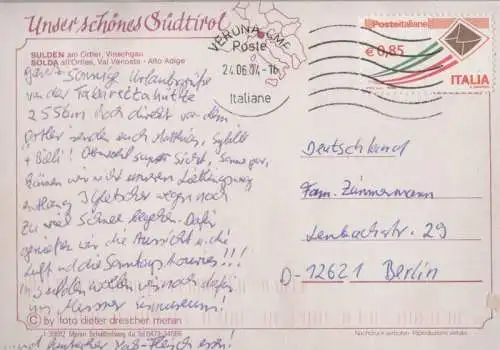 Unser schönes Südtirol
SULDEN am Ortler, Vinschgau
SOLDA all'Ortles, Val Venosta - Alto Adige
ganz sonnige Urlaubsgrüße
von der Tabarettahütte
2556m hoch direkt vor dem
Ortler senden euch Matthias, Sybille
+ ! Obwohl super Sicht, Sonne pur,
können wir nicht unseren Lieblingsweg
entlang 3 Gletscher wegen noch
zu viel Schnee begehen. Dafür
genießen wir die Aussicht u. die
Luft und die !!!
In Sulden wollen wir noch dafür
ins Messner Museum!
© by foto dieter drescher meran
I-39012 Meran
und
VERONA CMP
Poste
24.06.14-16
Italiane
Posteitaliane
€ 0,85
ITALIA
Deutschland
Fam. Zimmermann
Lenbachstr. 29
D-12621 Berlin
Nachdruck verboten - Riproduzione vietata